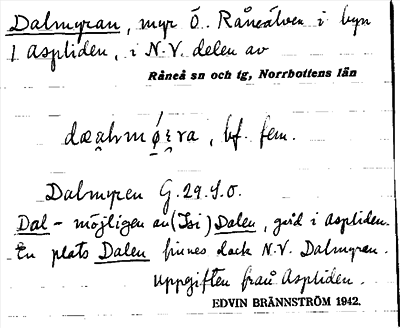 Dalmyran, myr Ö. Råneälven i byn
Aspliden, i N.V. delen av
Råneå sn och tg, Norrbottens län
bf. fem.
Dalmyren G. 29. S.O.
Dal- möjligen av (Isi) Dalen, gård i Aspliden.
En plats Dalen finnes dock N.V. Dalmyran.
Uppgiften från Aspliden.
EDVIN BRÄNNSTRÖM 1942.